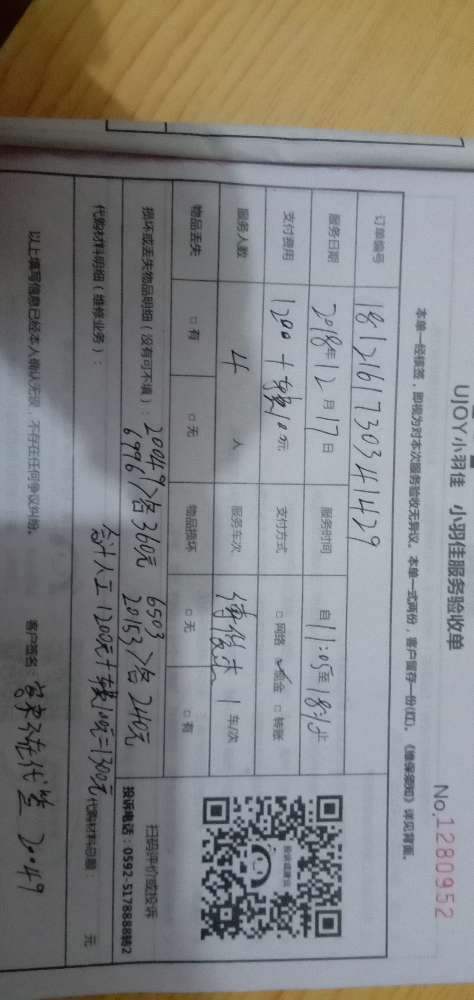 UJOY小羽佳 小羽佳服务验收单
No.1280952
本单一经核签,即视为对本次服务验收无异议。本单一式两份,客户留存一份(红)。《维保须知》详见背面。
订单编号 1812161730341429
服务日期 2018年12月17日 服务时间 自11:05至18:
支付费用 1200+车费100元 支付方式 □网络 □现金 □转账
服务人数 4人 服务车次 1车/次
物品丢失 □有 □无 物品损坏 □无 □有
损坏或丢失物品明细(没有可不填):
20049 6996>各360元 6503 20153>各240元
代购材料明细(维修业务):
合计人工1200元+车费100元=1300元 代购材料总额: 元
以上填写信息已经本人确认无误,不存在任何争议纠纷。 客户签名: 客人不在代签 20049
投诉或建议
扫码评价或投诉
投诉电话:0592-5178888转2